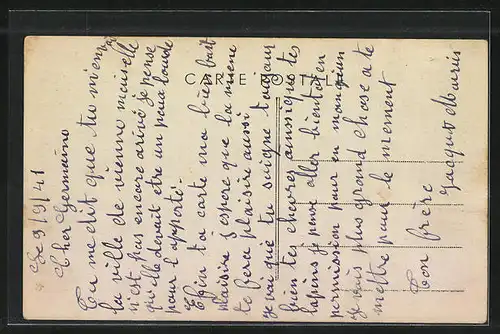 CARTE POSTALE
Le 3/9/41
Cher Germaine
Tu me dit que tu vien à
la ville de vienne mais elle
n'est pas encore arivé je pense
qu'elle devait etre un peux lourde
pour l'apporté.
Efin ta carte ma bien fait
plaisire j'espore que la miene
te fera plaisire aussi
je vai que tu soigne toujour
bien tes chevres ainssi que tes
lapins je pense aller bientot en
permission pour en manger un
je vois plus grand chose a te
mettre pour le moment
Ton frère
Jacquot